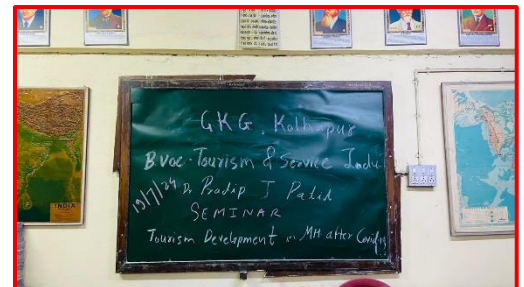 GKG, Kolhapur
B Voc - Tourism & Service Indu
19/7/24 Dr Pradip J Patil
SEMINAR
Tourism Development in MH after Covid 19
INDIA